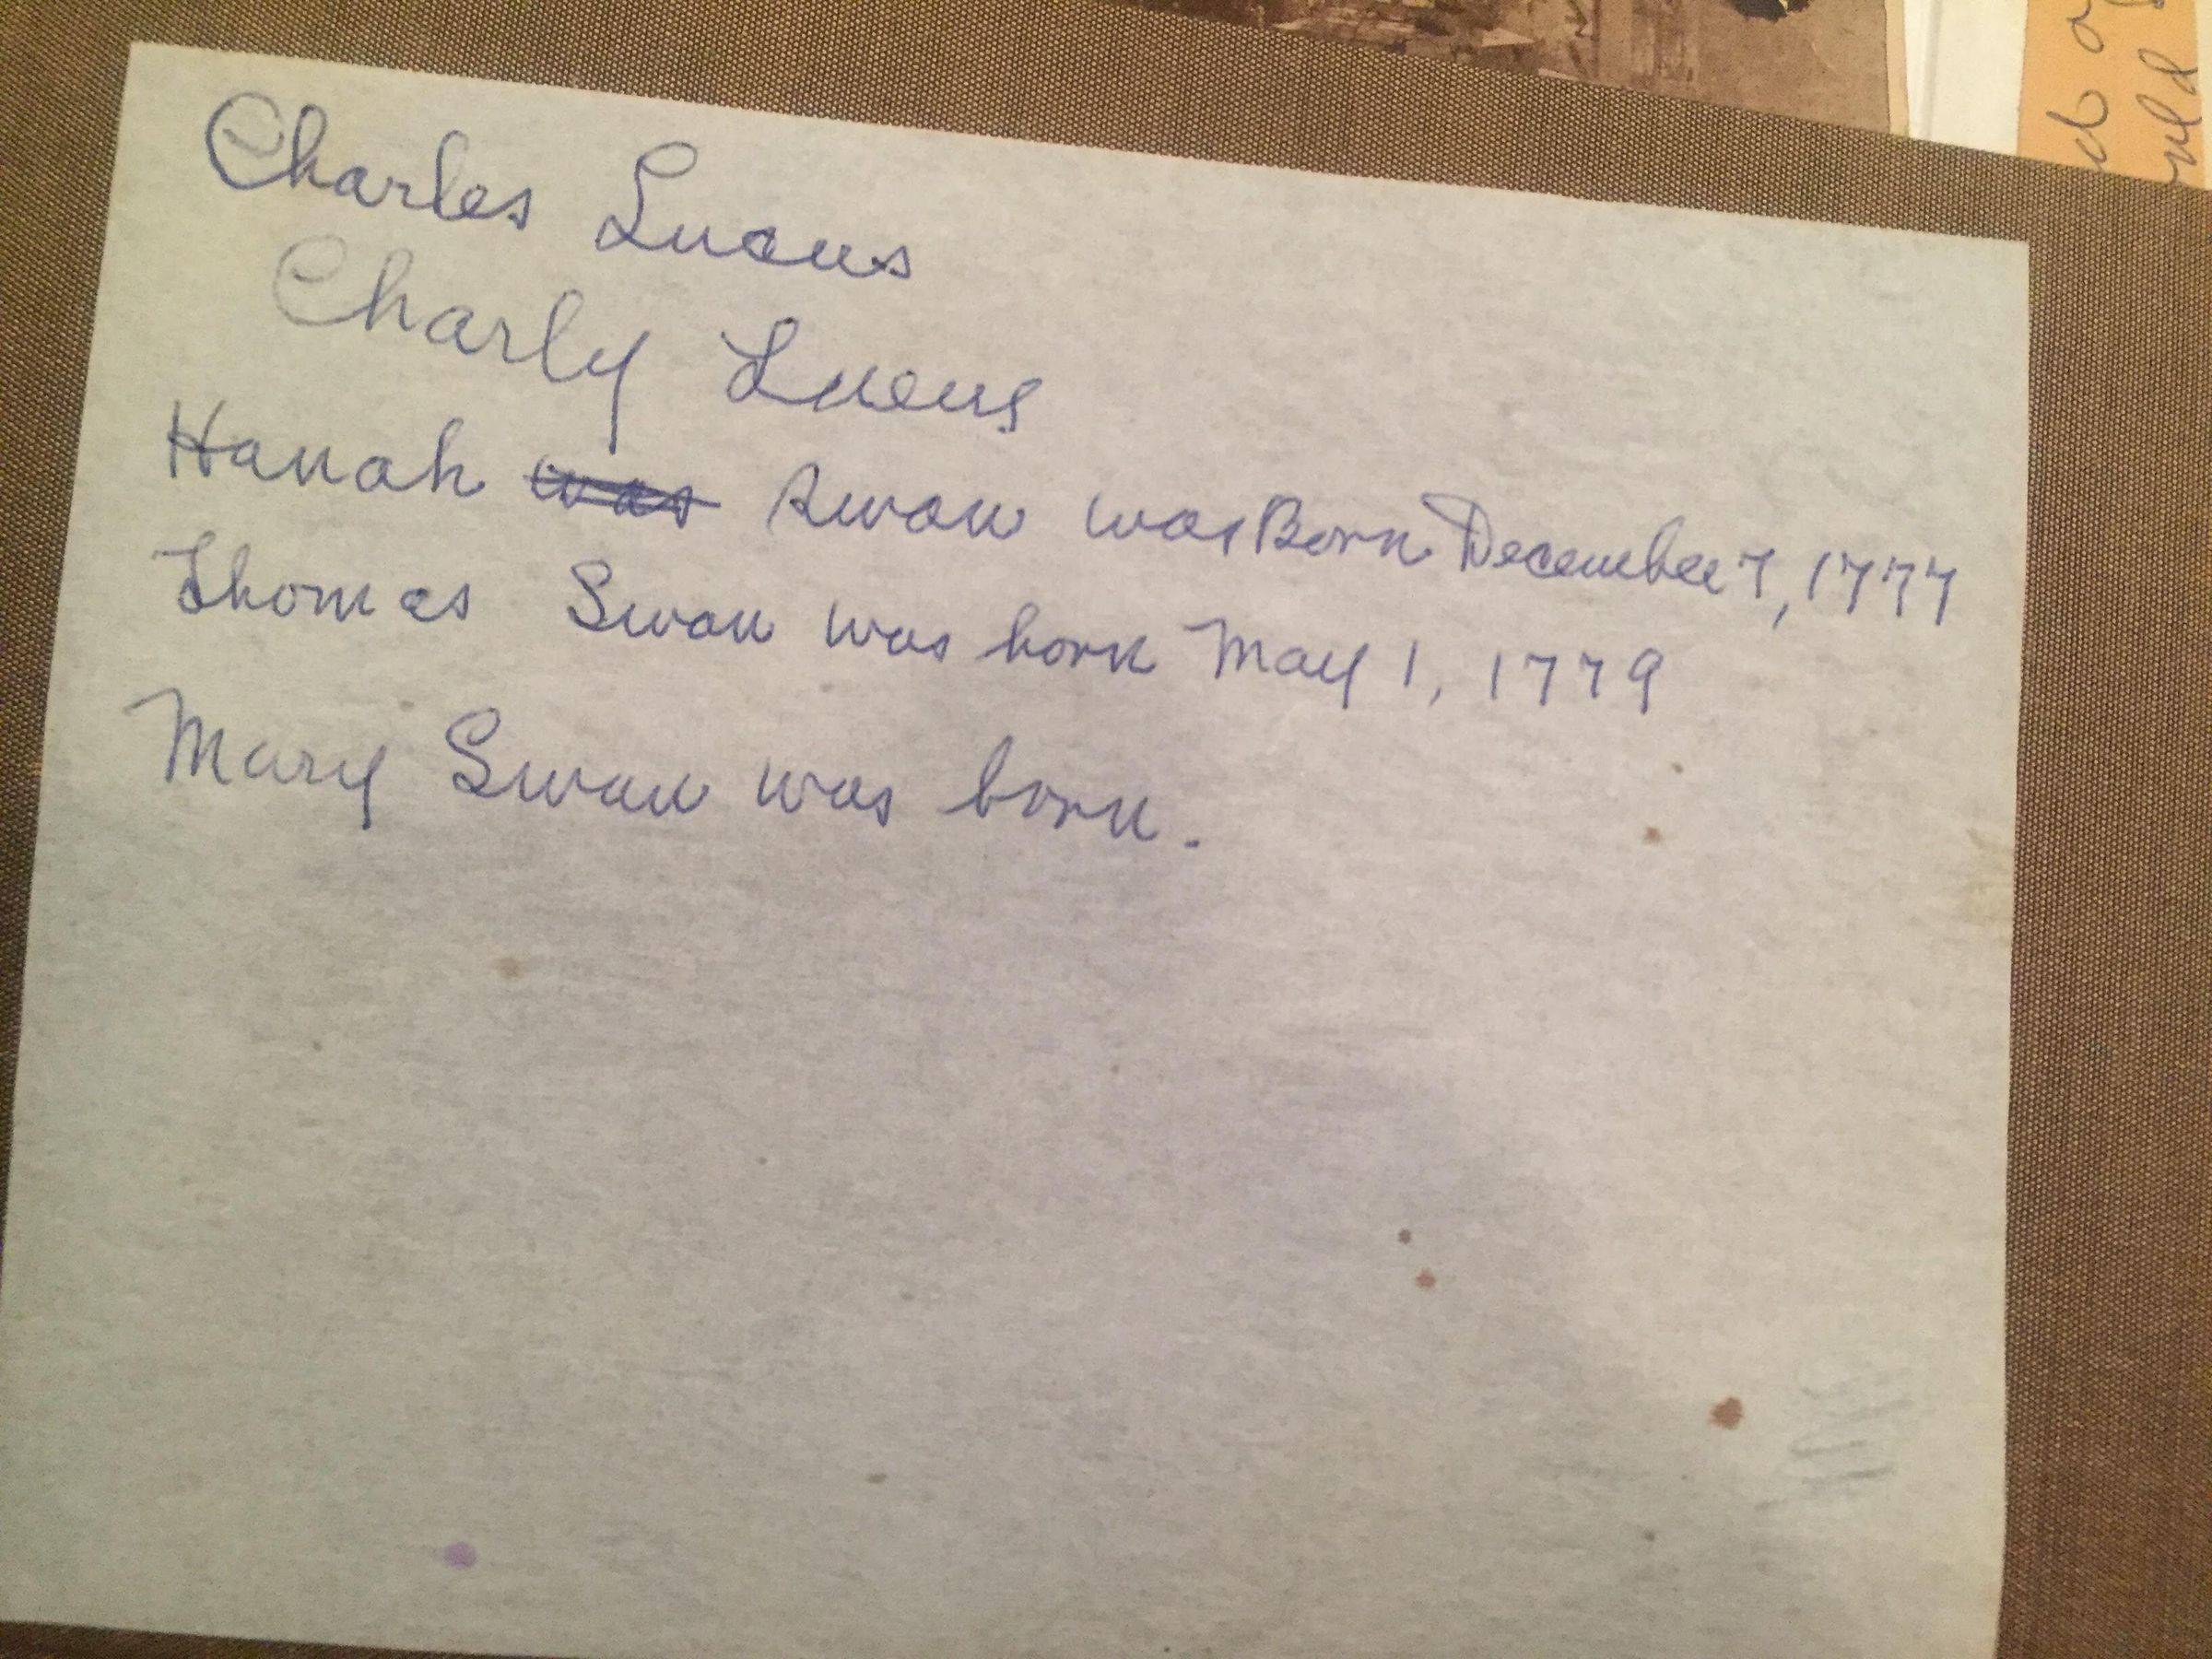 Charles Lucus
Charly Lucus
Hanah was Swan was Born December 7, 1777
Thomas Swan was born May 1, 1779
Mary Swan was born.